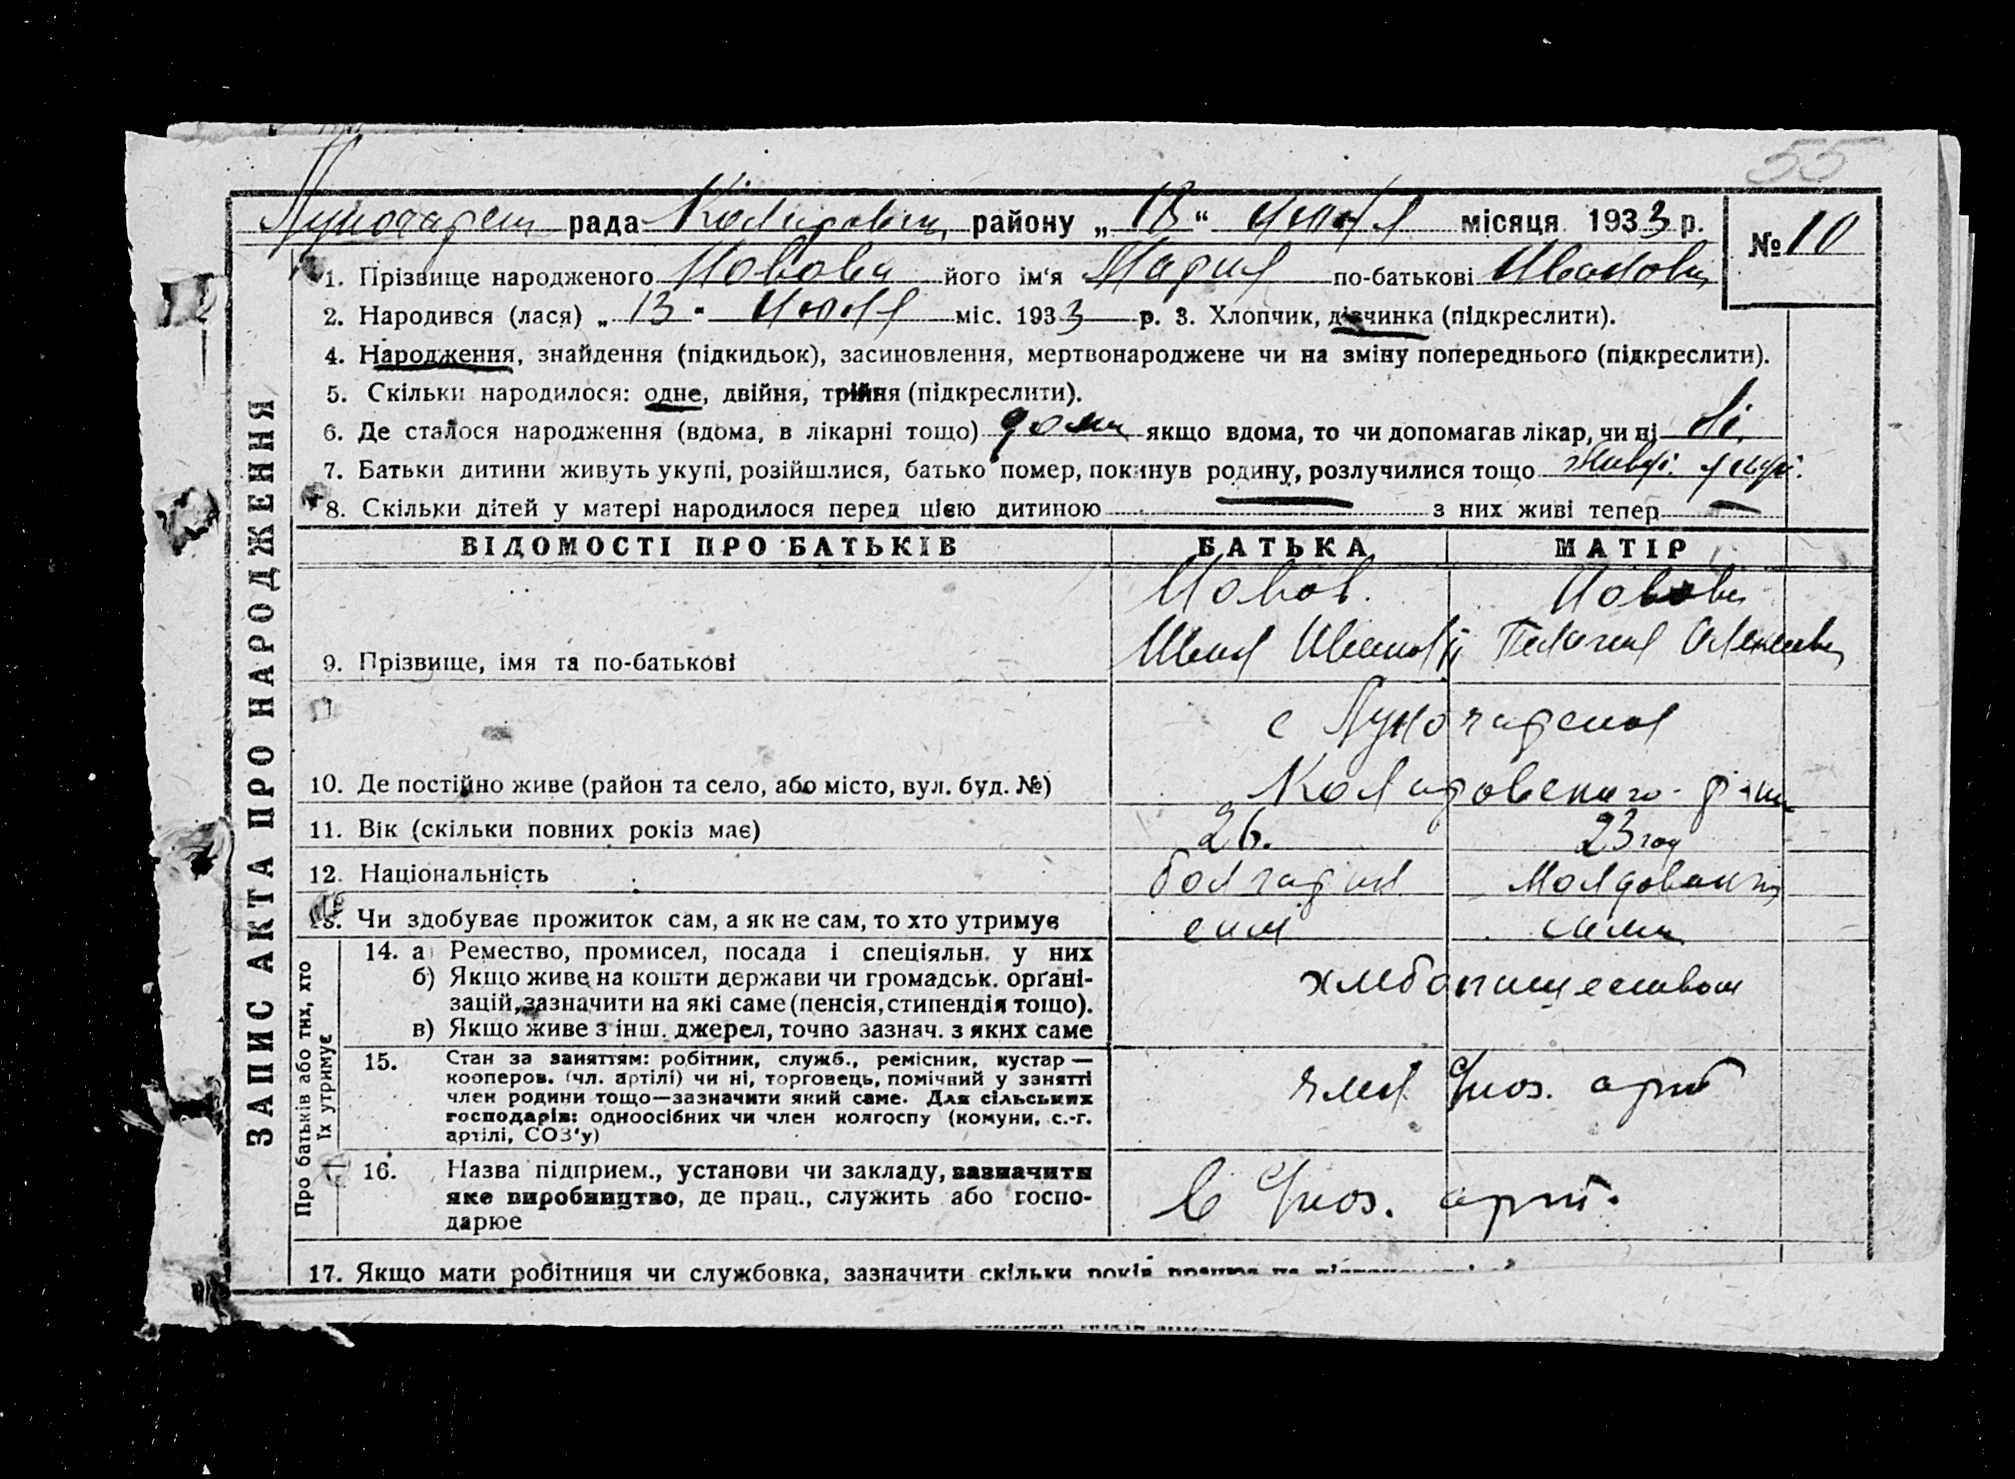 55
рада района „13“ июня місяця 1933 р. № 10
1. Прізвище народженого його ім‘я Мария по-батькові Иванов
2. Народився (лася) „13 - июня міс. 1933 р. 3. Хлопчик, дівчинка (підкреслити).
4. Народження, знайдення (підкидьок), засиновлення, мертвонароджене чи на зміну попереднього (підкреслити).
5. Скільки народилося: одне, двійня, трійня (підкреслити).
6. Де сталося народження (вдома, в лікарні тощо) дома якщо вдома, то чи допомагав лікар, чи ні ні
7. Батьки дитини живуть укупі, розійшлися, батько помер, покинув родину, розлучилися тощо
8. Скільки дітей у матері народилося перед цією дитиною — з них живі тепер —
ВІДОМОСТІ ПРО БАТЬКІВ БАТЬКА МАТІР
9. Прізвище, імя та по-батькові Иван Пелагия
10. Де постійно живе (район та село, або місто, вул. буд. №) с
11. Вік (скільки повних років має) 26. 23 год
12. Національність болгарин Молдованка
13. Чи здобуває прожиток сам, а як не сам, то хто утримує сам сама
Про батьків або тих, хто
їх утримує
14. а) Ремество, промисел, посада і спеціяльн. у них
б) Якщо живе на кошти держави чи громадськ. орґані-
зацій, зазначити на які саме (пенсія, стипендія тощо).
в) Якщо живе з інш. джерел, точно зазнач. з яких саме
хлебопашеством
15. Стан за заняттям: робітник, служб., ремісник, кустар —
кооперов. (чл. артілі) чи ні, торговець, помічний у занятті
член родини тощо—зазначити який саме. Для сільських
господарів: одноосібних чи член колгоспу (комуни, с.-г.
артілі, СОЗ‘у)
член арт
16. Назва підприєм., установи чи закладу, зазначити
яке виробництво, де прац., служить або госпо-
дарює
в арт.
17. Якщо мати робітниця чи службовка, зазначити скільки років працює на
ЗАПИС АКТА ПРО НАРОДЖЕННЯ